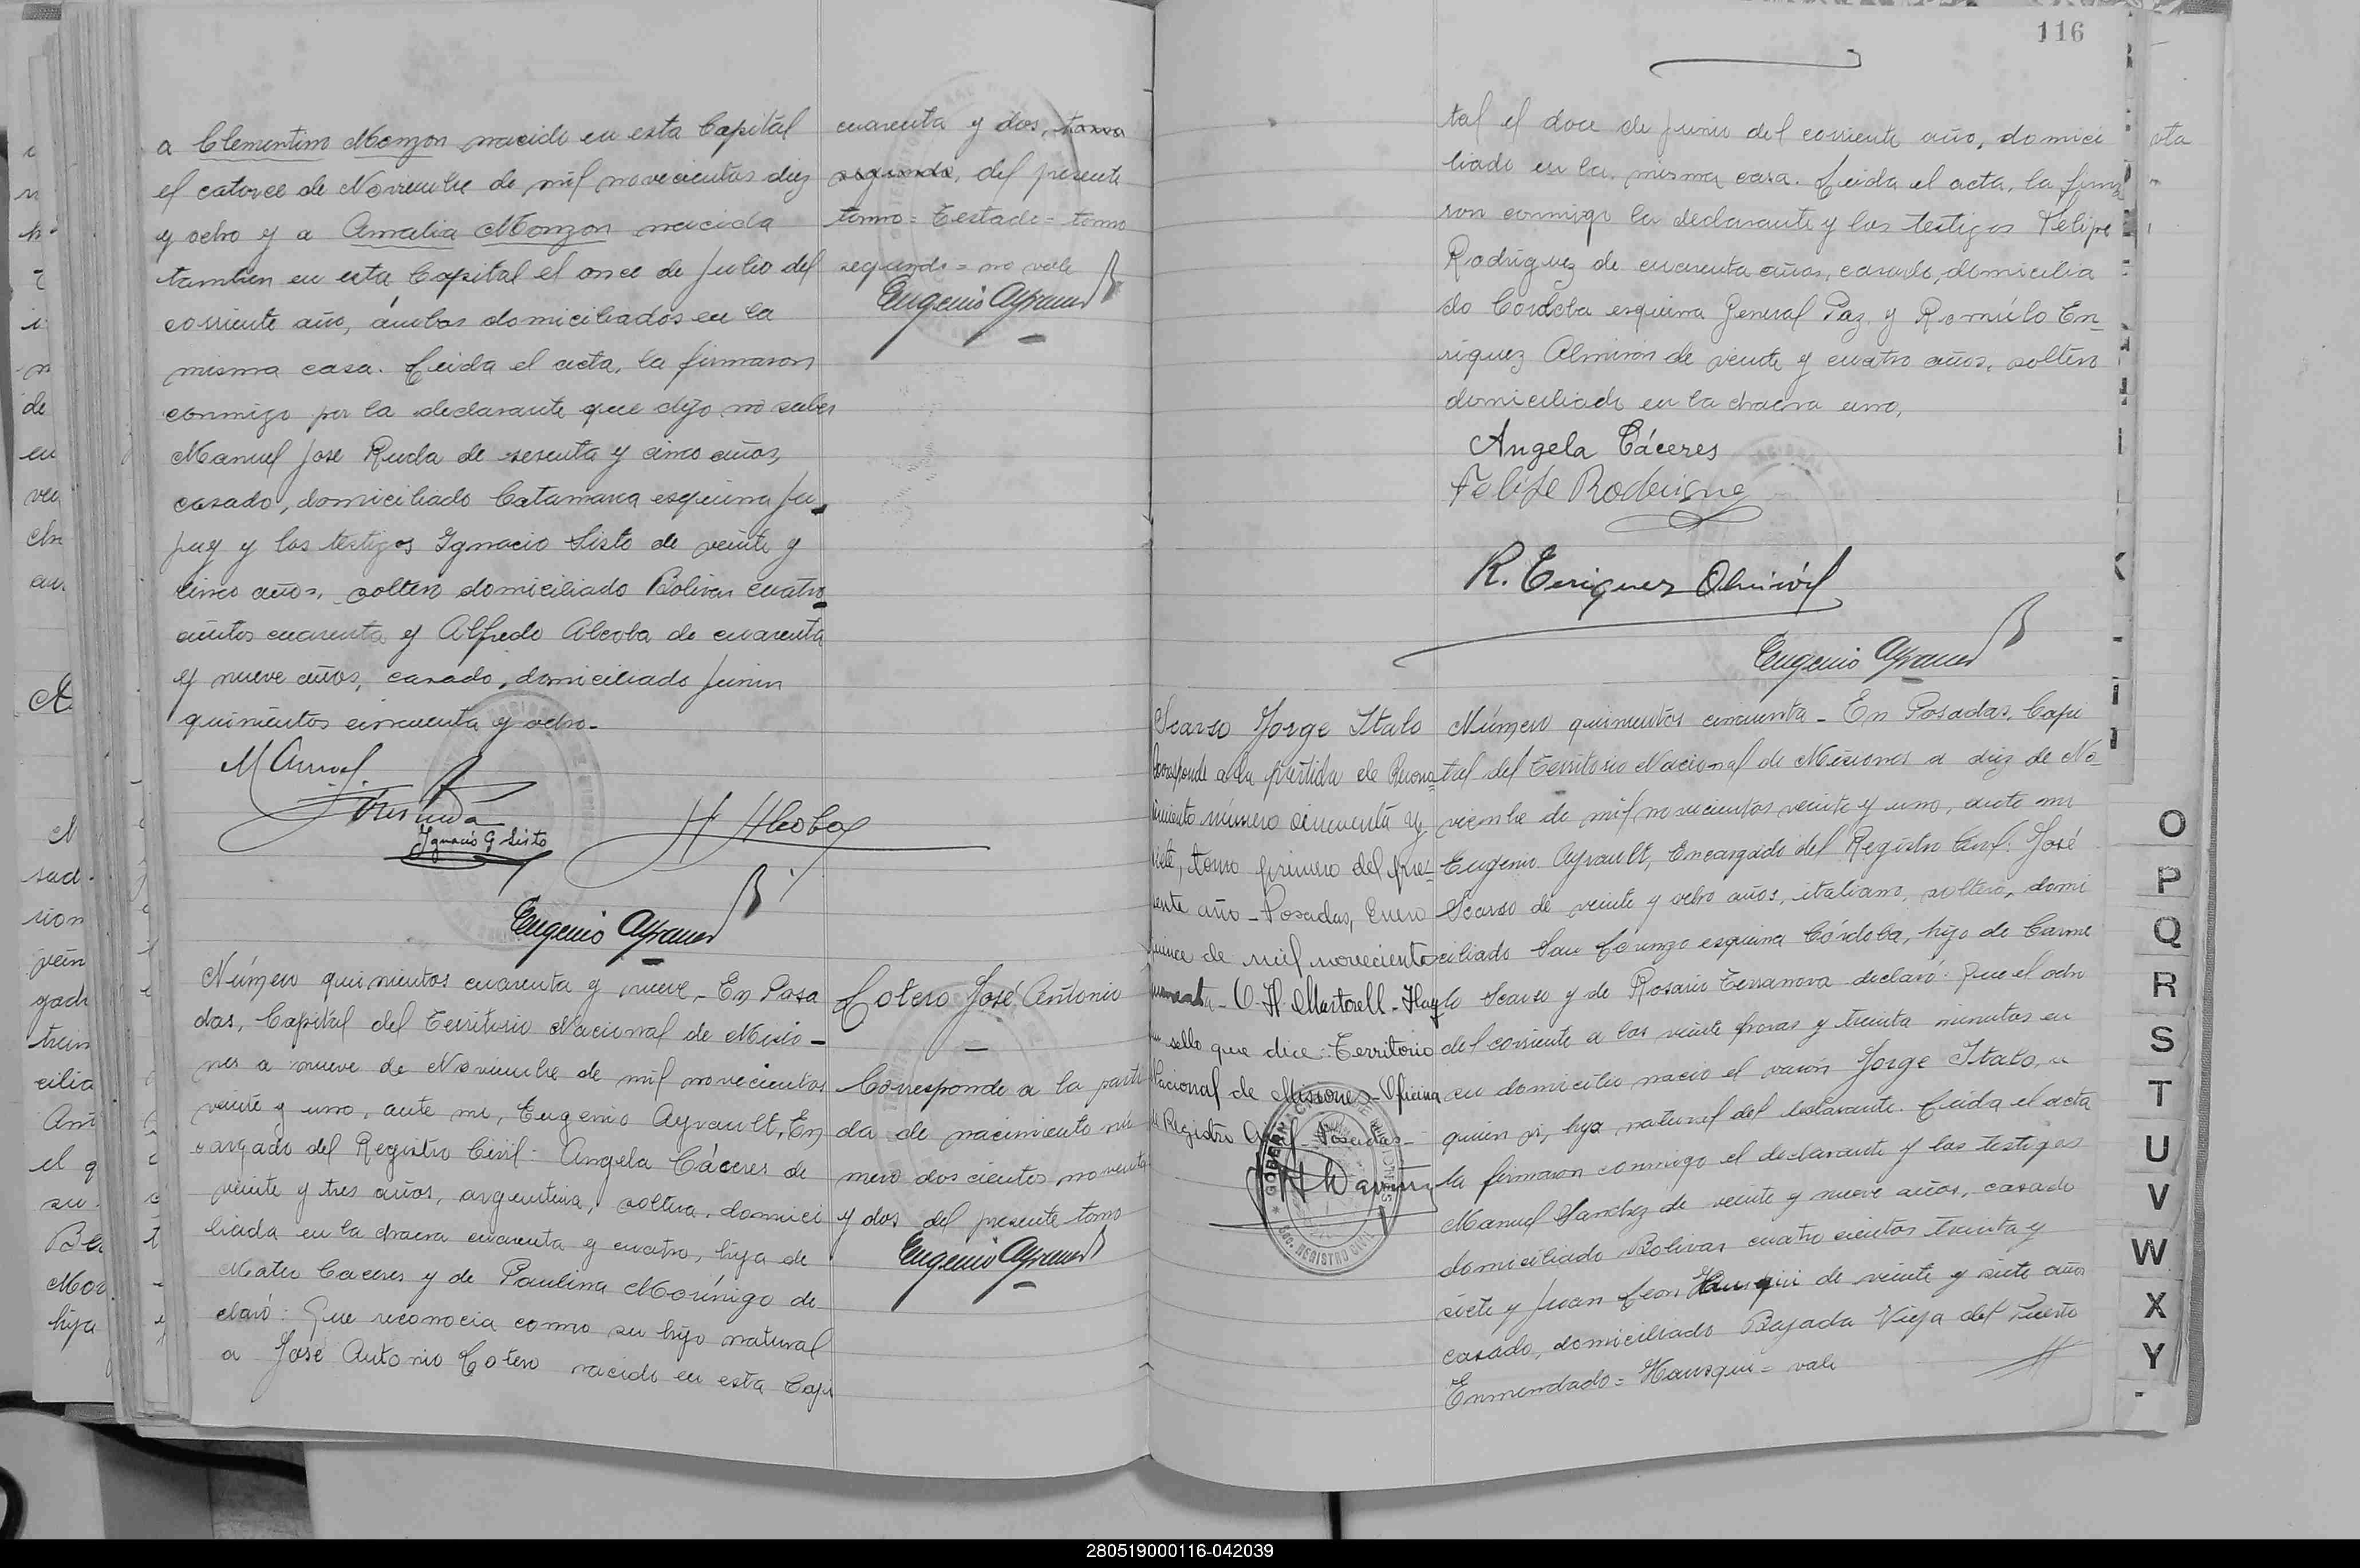 a Clementino Monzon nacido en esta Capital
el catorce de Noviembre de mil novecientos diez
y ocho y a Amalia Monzon nacida
tambien en esta Capital el once de Julio del
corriente año, ámbos domiciliados en la
misma casa. Leida el acta, la firmaron
conmigo por la declarante que dijo no saber
Manuel Jose Rueda de sesenta y cinco años,
casado, domiciliado Catamarca esquina Ju_
juy y los testigos Ignacio Sisto de veinte y
cinco años, soltero domiciliado Bolivar cuatro_
cientos cuarenta y Alfredo Alcoba de cuarenta
y nueve años, casado, domiciliado Junin
quinientos cincuenta y ocho-
Ignacio G Sisto
Eugenio Ayrault
cuarenta y dos, tomo
segundo, del presente
tomo = Testado = tomo
segundo = no vale
Eugenio Ayrault
Número quinientos cuarenta y nueve_ En Posa
das, Capital del Territorio Nacional de Misio-
nes a nueve de Noviembre de mil novecientos
veinte y uno, ante mi, Eugenio Ayrault, En
cargado del Registro Civil: Angela Cáceres de
veinte y tres años, argentina, soltera, domici
liada en la chacra cuarenta y cuatro, hija de
Mateo Caceres y de Paulina Morínigo de
claró: Que reconocia como su hijo natural
a José Antonio Cotero nacido en esta Capi
Cotero José Antonio
Corresponde a la parti
da de nacimiento nú
mero dos cientos noventa
y dos del presente tomo
Eugenio Ayrault
116
tal el doce de junio del corriente año, domici
liado en la misma casa. Leida el acta, la firma
ron conmigo la declarante y los testigos Felipe
Rodriguez de cuarenta años, casado, domicilia
do Cordoba esquina General Paz y Romúlo En_
riquez Almiron de veinte y cuatro años, soltero
domiciliado en la chacra uno,
Angela Cáceres
Felipe Rodrigue
R. Enriquez Almirón
Eugenio Ayrault
Scarso Jorge Italo
Corresponde a la partida de Recono_
cimiento número cincuenta y
siete, tomo primero del pre_
sente año - Posadas, Enero
quince de mil novecientos
cuarenta - O. H. Martorell - Hay
un sello que dice: Territorio
Nacional de Misiones - Oficina
del Registro Civil - Posadas -
GOBERNACION DE MISIONES
REGISTRO CIVIL
Número quinientos cincuenta - En Posadas, Capi
tal del Territorio Nacional de Misiones a diez de No_
viembre de mil novecientos veinte y uno, ante mi
Eugenio Ayrault, Encargado del Registro Civil: José
Scarso de veinte y ocho años, italiano, soltero, domi
ciliado San Lorenzo esquina Córdoba, hijo de Carme
lo Scarso y de Rosario Terranova declaró: Que el ocho
del corriente a las veinte horas y treinta minutos en
su domicilio nacio el varón Jorge Italo, a
quien vi, hijo natural del declarante. Leida el acta
la firmaron conmigo el declarante y los testigos
Manuel Sanchez de veinte y nueve años, casado
domiciliado Bolivar cuatro cientos treinta y
siete y Juan Leon Hausqui de veinte y siete años
casado, domiciliado Bajada Vieja del Puerto
Enmendado = Hausqui = vale
O
P
Q
R
S
T
U
V
W
X
Y
280519000116-042039